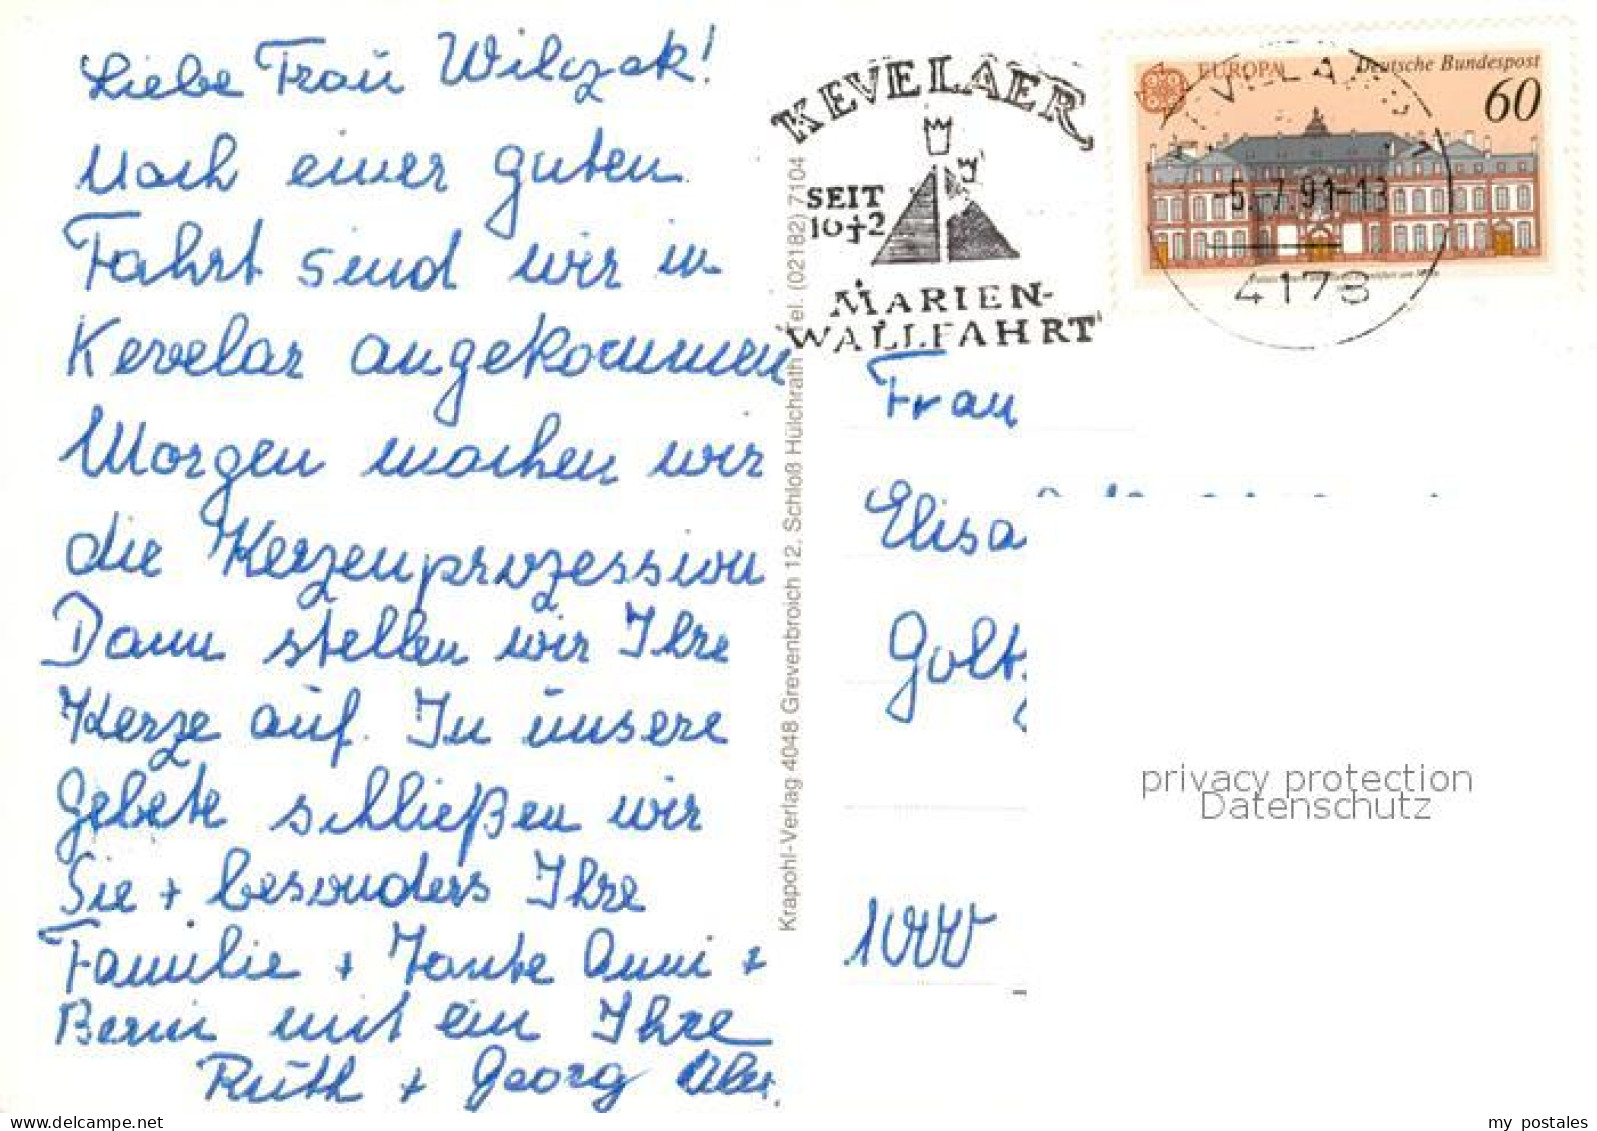 Liebe Frau Wilczek!
Nach einer guten
Fahrt sind wir in
Kevelar angekommen
Morgen machen wir
die Kerzenprozession
Dann stellen wir Ihre
Kerze auf. In unsere
Gebete schließen wir
Sie + besonders Ihre
Familie + Tante Anni +
mit ein Ihre
Ruth + Georg
Krapohl-Verlag 4048 Grevenbroich 12, Schloß Hülchrath Tel. (02182) 7104
KEVELAER
SEIT
1642
MARIEN-
WALLFAHRT
EUROPA Deutsche Bundespost
60
-5.-7.91-13
4178
Frau
Elisa
Golt
1000
privacy protection
Datenschutz
www.delcampe.net
my_postales